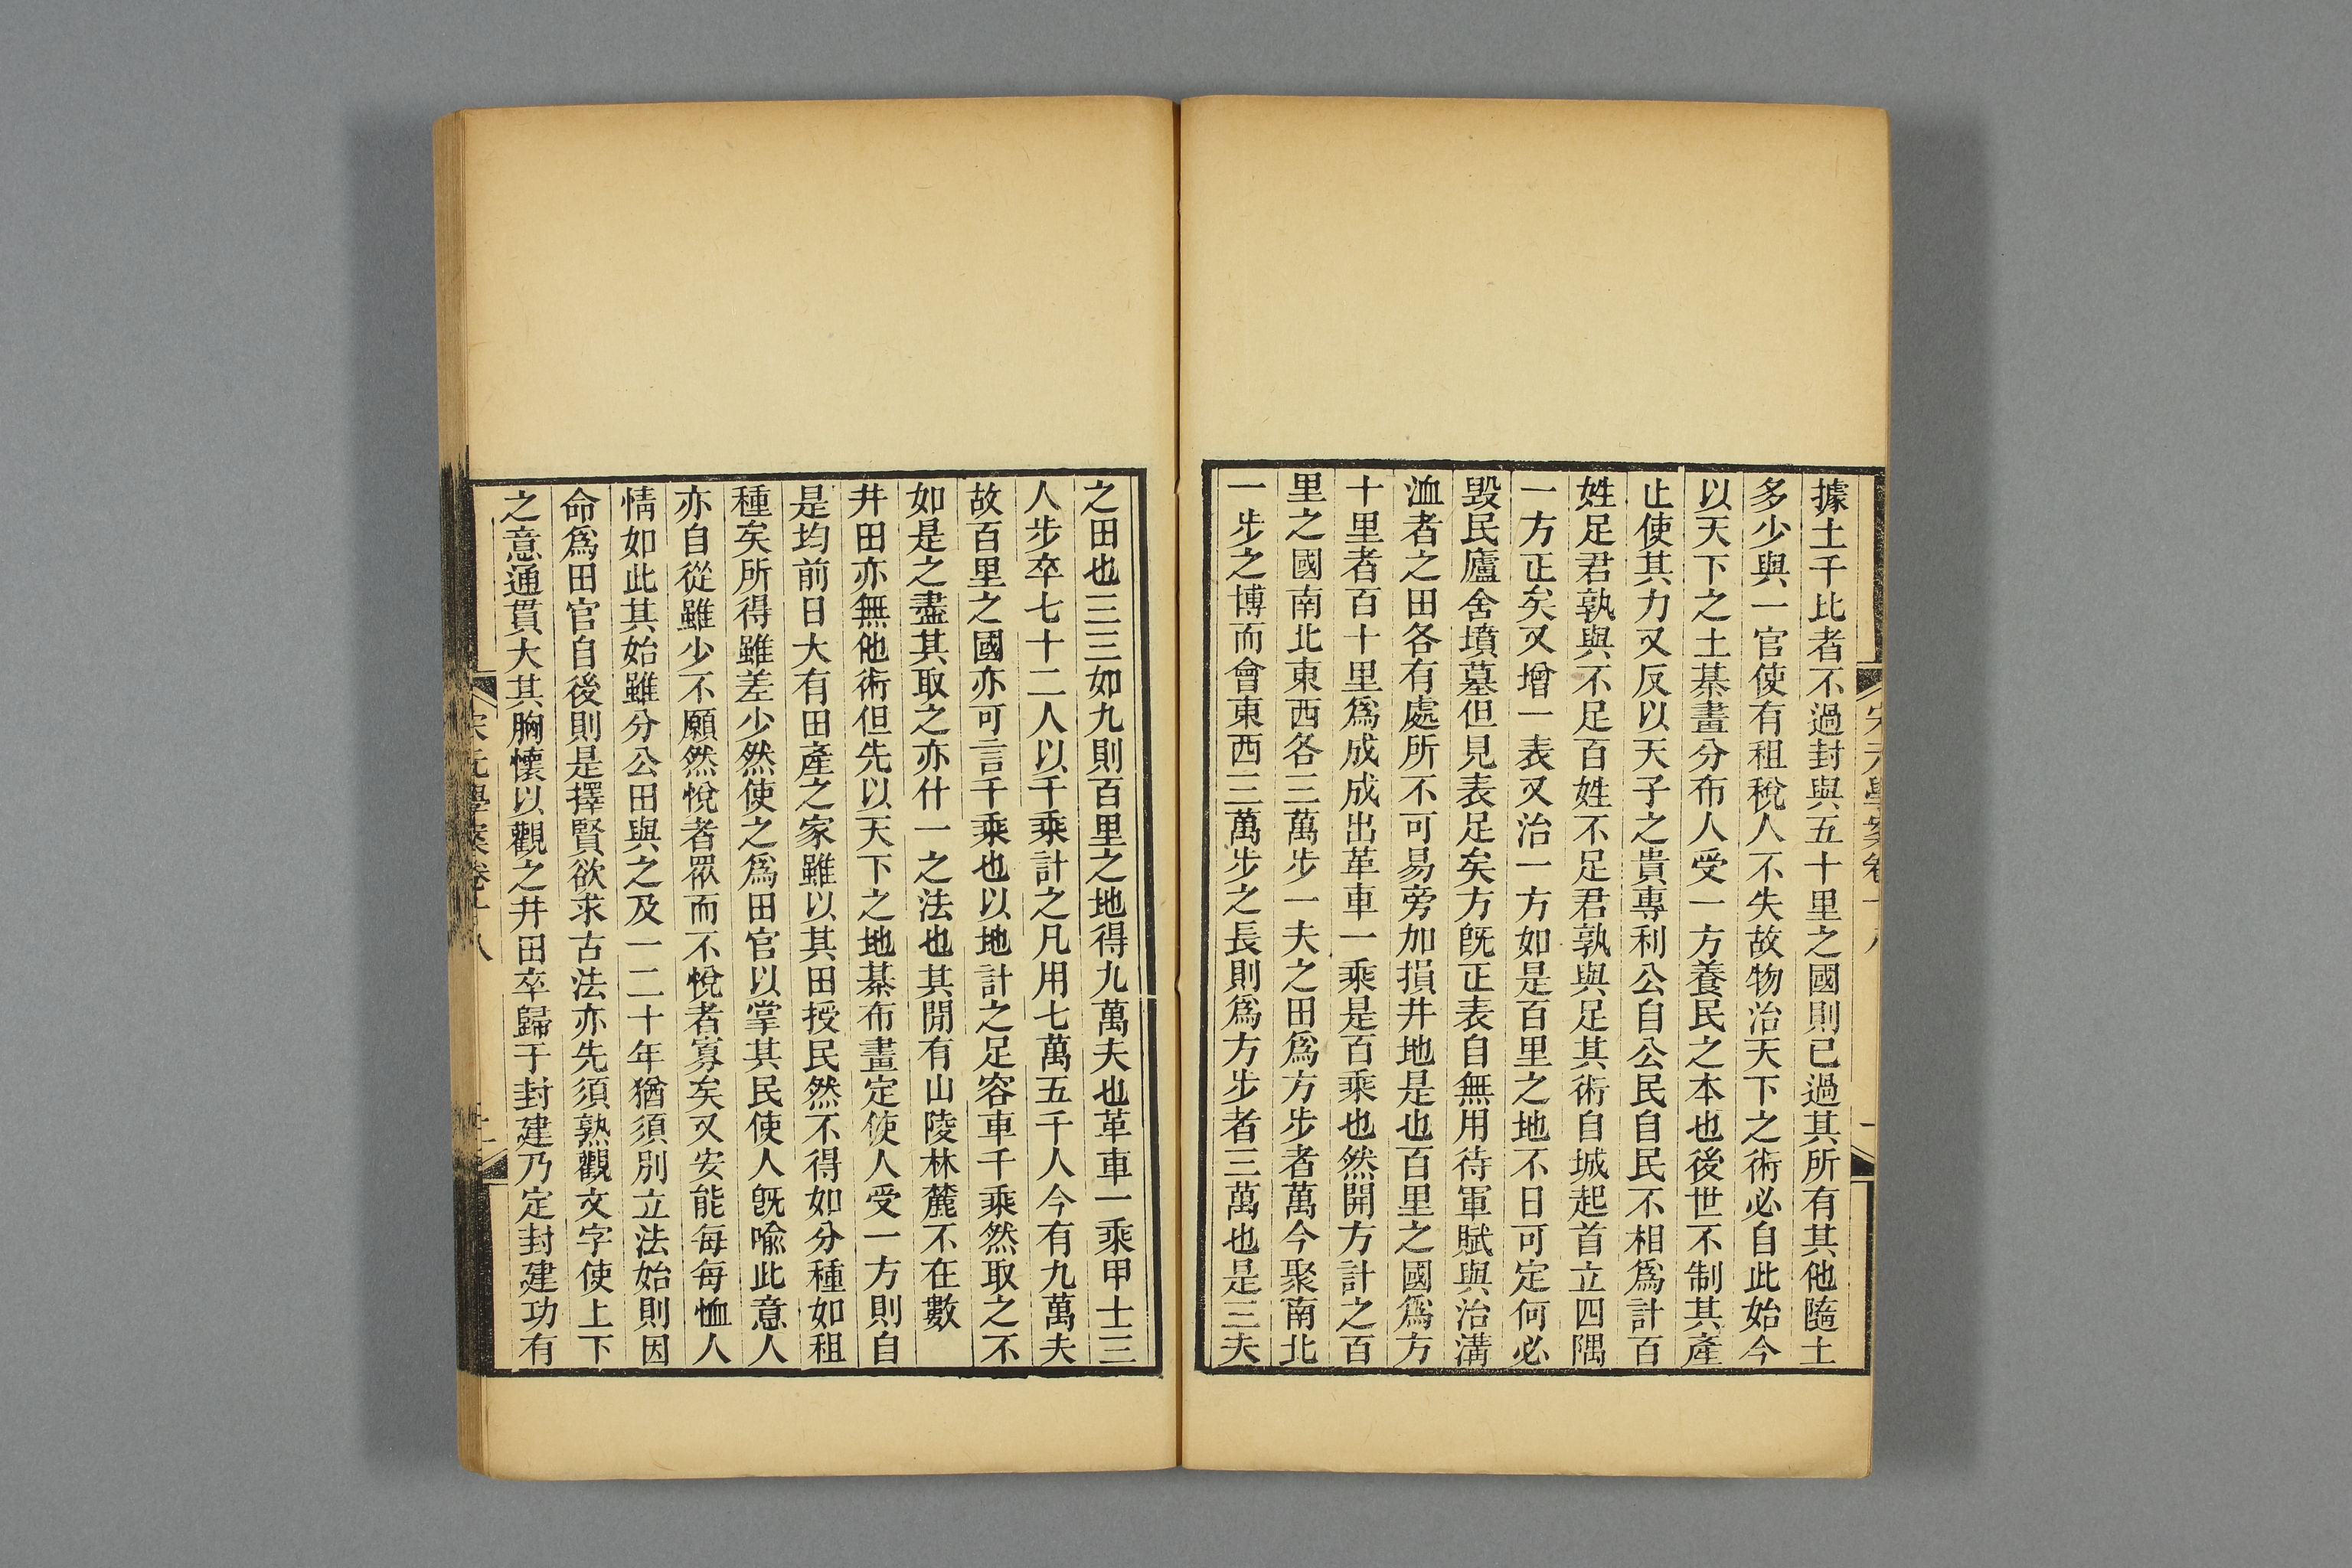 據土千比者不過封與五十里之國則已過其所有其他隨土
多少與一官使有租稅人不失故物治天下之術必自此始今
以天下之土棊畫分布人受一方養民之本也後世不制其產
止使其力又反以天子之貴專利公自公民自民不相爲計百
姓足君孰與不足百姓不足君孰與足其術自城起首立四隅
一方正矣又增一表又治一方如是百里之地不日可定何必
毀民廬舍墳墓但見表足矣方旣正表自無用待軍賦與治溝
洫者之田各有處所不可易旁加損井地是也百里之國爲方
十里者百十里爲成成出革車一乘是百乘也然開方計之百
里之國南北東西各三萬步一夫之田爲方步者萬今聚南北
一步之博而會東西三萬步之長則爲方步者三萬也是三夫
之田也三三如九則百里之地得九萬夫也革車一乘甲士三
人步卒七十二人以千乘計之凡用七萬五千人今有九萬夫
故百里之國亦可言千乘也以地計之足容車千乘然取之不
如是之盡其取之亦什一之法也其閒有山陵林麓不在數
井田亦無他術但先以天下之地棊布畫定使人受一方則自
是均前日大有田產之家雖以其田授民然不得如分種如租
種矣所得雖差少然使之爲田官以掌其民使人旣喻此意人
亦自從雖少不願然悅者眾而不悅者寡矣又安能每每恤人
情如此其始雖分公田與之及一二十年猶須別立法始則因
命爲田官自後則是擇賢欲求古法亦先須熟觀文字使上下
之意通貫大其胸懷以觀之井田卒歸于封建乃定封建功有
宋元學案卷十八